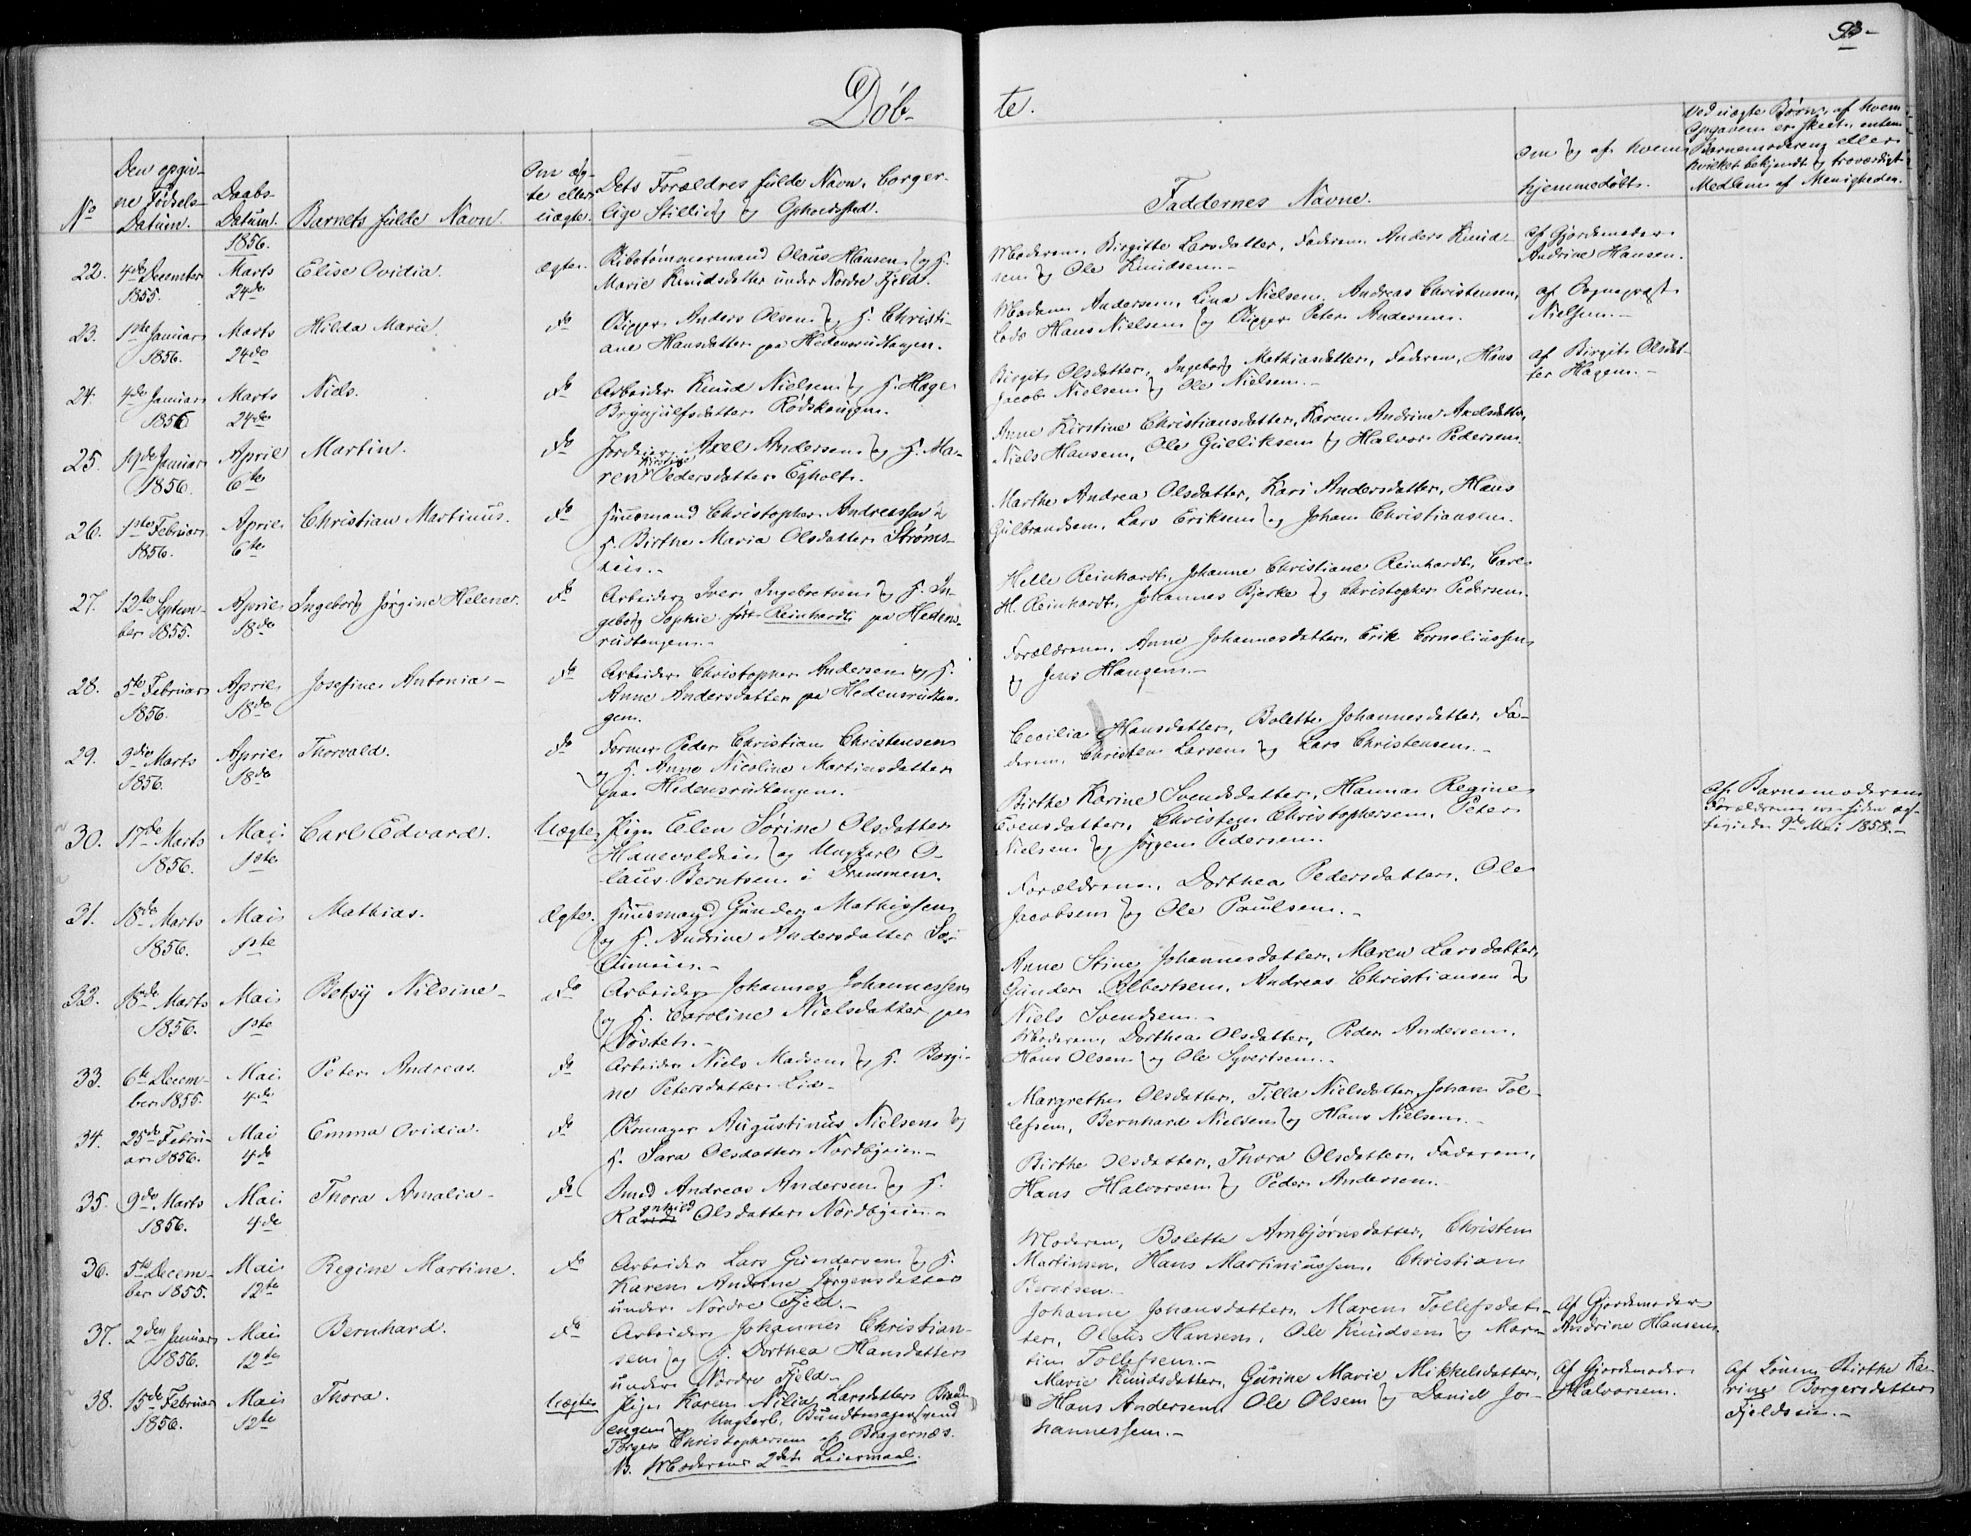 93-
Døb-
te.
No
Den opgiv-
ne Fødsels-
Datum.
Daabs-
Datum.
Barnets fulde Navn.
Om æg-
te eller
uægte.
Dets Forældres fulde Navn, borger-
lige Stilling og Opholdssted.
Faddernes Navne.
Om og af hvem
hjemmedøbt.
Ved uægte Børn, af hvem
Opgaven er skeet, enten
Barnemoderen eller
hvilket bekjendt og troværdigt
Medlem af Menigheden.
1856.
22. 4de December Marts Elise Ovidia. ægte.
1855. 24de
Skibstømmermand Olaus Hansen og H.
Marie Knudsdatter under Nordre Fjeld.
Moderen, Birgitte Larsdatter, Faderen Anders Knud-
sen og Ole Knudsen.-
af Gjordemoder
Andrine Hansen.
23. 1ste Januar Marts Hilda Marie. do
1856. 24de
Skipper Anders Olsen og H. Christi-
ane Hansdatter paa Hedensrudtangen.
Madam Andersen, Lina Nielsen, Andreas Christensen,
Lods Hans Nielsen og Skipper Peter Andersen.
af Sognepræst
Nielsen.-
24. 4de Januar Marts Niels. do
1856 24de
Arbeider Knud Nielsen og H. Hage
Brynjulfsdatter Rødskougen.
Birgit Olsdatter, Ingeborg Mathiasdatter, Faderen, Hans
Jacob Nielsen og Ole Nielsen.-
af Birgit Olsdat-
ter Hagen.-
25. 19de Januar April Martin. do
1856. 6te
Jordeier Axel Andersen og H. Ma-
ren Kirstine Pedersdatter Egholt.
Anne Kirstine Christiansdatter, Karen Andrine Axelsdatter,
Niels Hansen, Ole Gulliksen og Halvor Pedersen.
26. 1ste Februar April Christian Martinus. do
1856. 6te
Huusmand Christopher Andreassen &
H. Birthe Maria Olsdatter Strøms-
eie.-
Marthe Andrea Olsdatter, Kari Andersdatter, Hans
Gulbrandsen, Lars Eriksen og Johan Christiansen.
27. 12te Septem- April Ingeborg Jørgine Helene. do
ber 1855. 18de
Arbeider Iver Ingebretsen og H. In-
geborg Sophie født Reinhardt paa Hedens-
rudtangen.-
Helle Reinhardt, Johanne Christiane Reinhardt, Carl
H. Reinhardt, Johannes Bjerke og Christopher Pedersen.
28. 5te Februar April Josefine Antonia- do
1856. 18de
Arbeider Christopher Andersen og H.
Anne Andersdatter paa Hedensrudtan-
gen.
Forældrene, Anne Johannesdatter, Erik Corneliussen
og Jens Hansen.-
29. 3die Marts April Thorvald. do
1856. 18de
Former Peder Christian Christensen
og H. Anne Nicoline Martinsdatter
paa Hedensrudtangen.
Cecilia Hansdatter, Bolette Johannesdatter, Fa-
deren, Christen Larsen og Lars Christensen.-
30. 17de Marts Mai Carl Edvard. Uægte
1856. 1ste
Pige Elen Sørine Olsdatter
Hanevoldeie og Ungkarl O-
laus Berntsen i Drammen.
Birthe Karine Svendsdatter, Hanna Regine
Evensdatter, Christen Christophersen, Peter
Nielsen og Jørgen Pedersen.
Af Barnemoderen
Forældrene ere siden æg-
teviede 9de Mai 1858.-
31. 18de Marts Mai Mathias. Ægte.
1856. 1ste
Huusmand Gunder Mathissen
og H. Andrine Andersdatter
Forældrene, Dorthea Pedersdatter, Ole
Jacobsen og Ole Paulsen.-
32. 18de Marts Mai Betsy Nilsine- do
1856. 1ste
Arbeider Johannes Johannessen
og H. Caroline Nielsdatter paa
Anne Stine Johannesdatter, Maren Larsdatter,
Gunder Albertsen, Andreas Christiansen &
Niels Svendsen.-
33. 6te Decem- Mai Peter Andreas. do
ber 1855. 4de
Arbeider Niels Madsen og H. Borgi-
ne Petersdatter Lie-
Moderen, Dorthea Olsdatter, Peder Andersen,
Hans Olsen og Ole Syvertsen.-
34. 25de Febru- Mai Emma Ovidia. do
ar 1856. 4de
Skomager Augustinus Nielsen og
H. Sara Olsdatter Nordbyeie.-
Margrethe Olsdatter, Tilla Nielsdatter, Johan Tol-
lefsen, Bernhard Nielsen og Hans Nielsen.-
35. 9de Marts Mai Thora Amalia- do
1856. 4de
Smed Andreas Andersen og H.
Olsdatter Nordbyeie-
Birthe Olsdatter, Thora Olsdatter, Faderen,
Hans Halvorsen og Peder Andersen.-
36. 5te Decem- Mai Regine Martine. do
ber 1855. 12te
Arbeider Lars Gundersen og H.
Karen Andrine Jørgensdatter
under Nordre Fjeld.-
Moderen, Bolette Arnbjørnsdatter, Christen
Martinsen, Hans Martiniussen, Christian
37. 2den Januar Mai Bernhard. do
1856. 12te
Arbeider Johannes Christian-
sen og H. Dorthea Hansdatter
under Nordre Fjeld-
Johanne Johansdatter, Maren Tollefsdat-
ter, Olaus Hansen, Ole Knudsen og Mar-
tin Tollefsen.-
Af Gjordemoder
Andrine Hansen.
38. 15de Februar Mai Thora. Uægte
1856. 12te
Pige Karen Nilia Larsdatter Brand-
engen og Ungkarl, Bundtmagersvend
Torger Christophersen af Bragernæs.
NB. Moderens 2det Leiermaal.
Marie Knudsdatter, Gurine Marie Mikkelsdatter,
Hans Andersen, Ole Olsen og Daniel Jo-
hannessen.-
Af Gjordemoder
Halvorsen.
Af Birthe Ka-
rine Borgersdatter
Fjeldseie.-